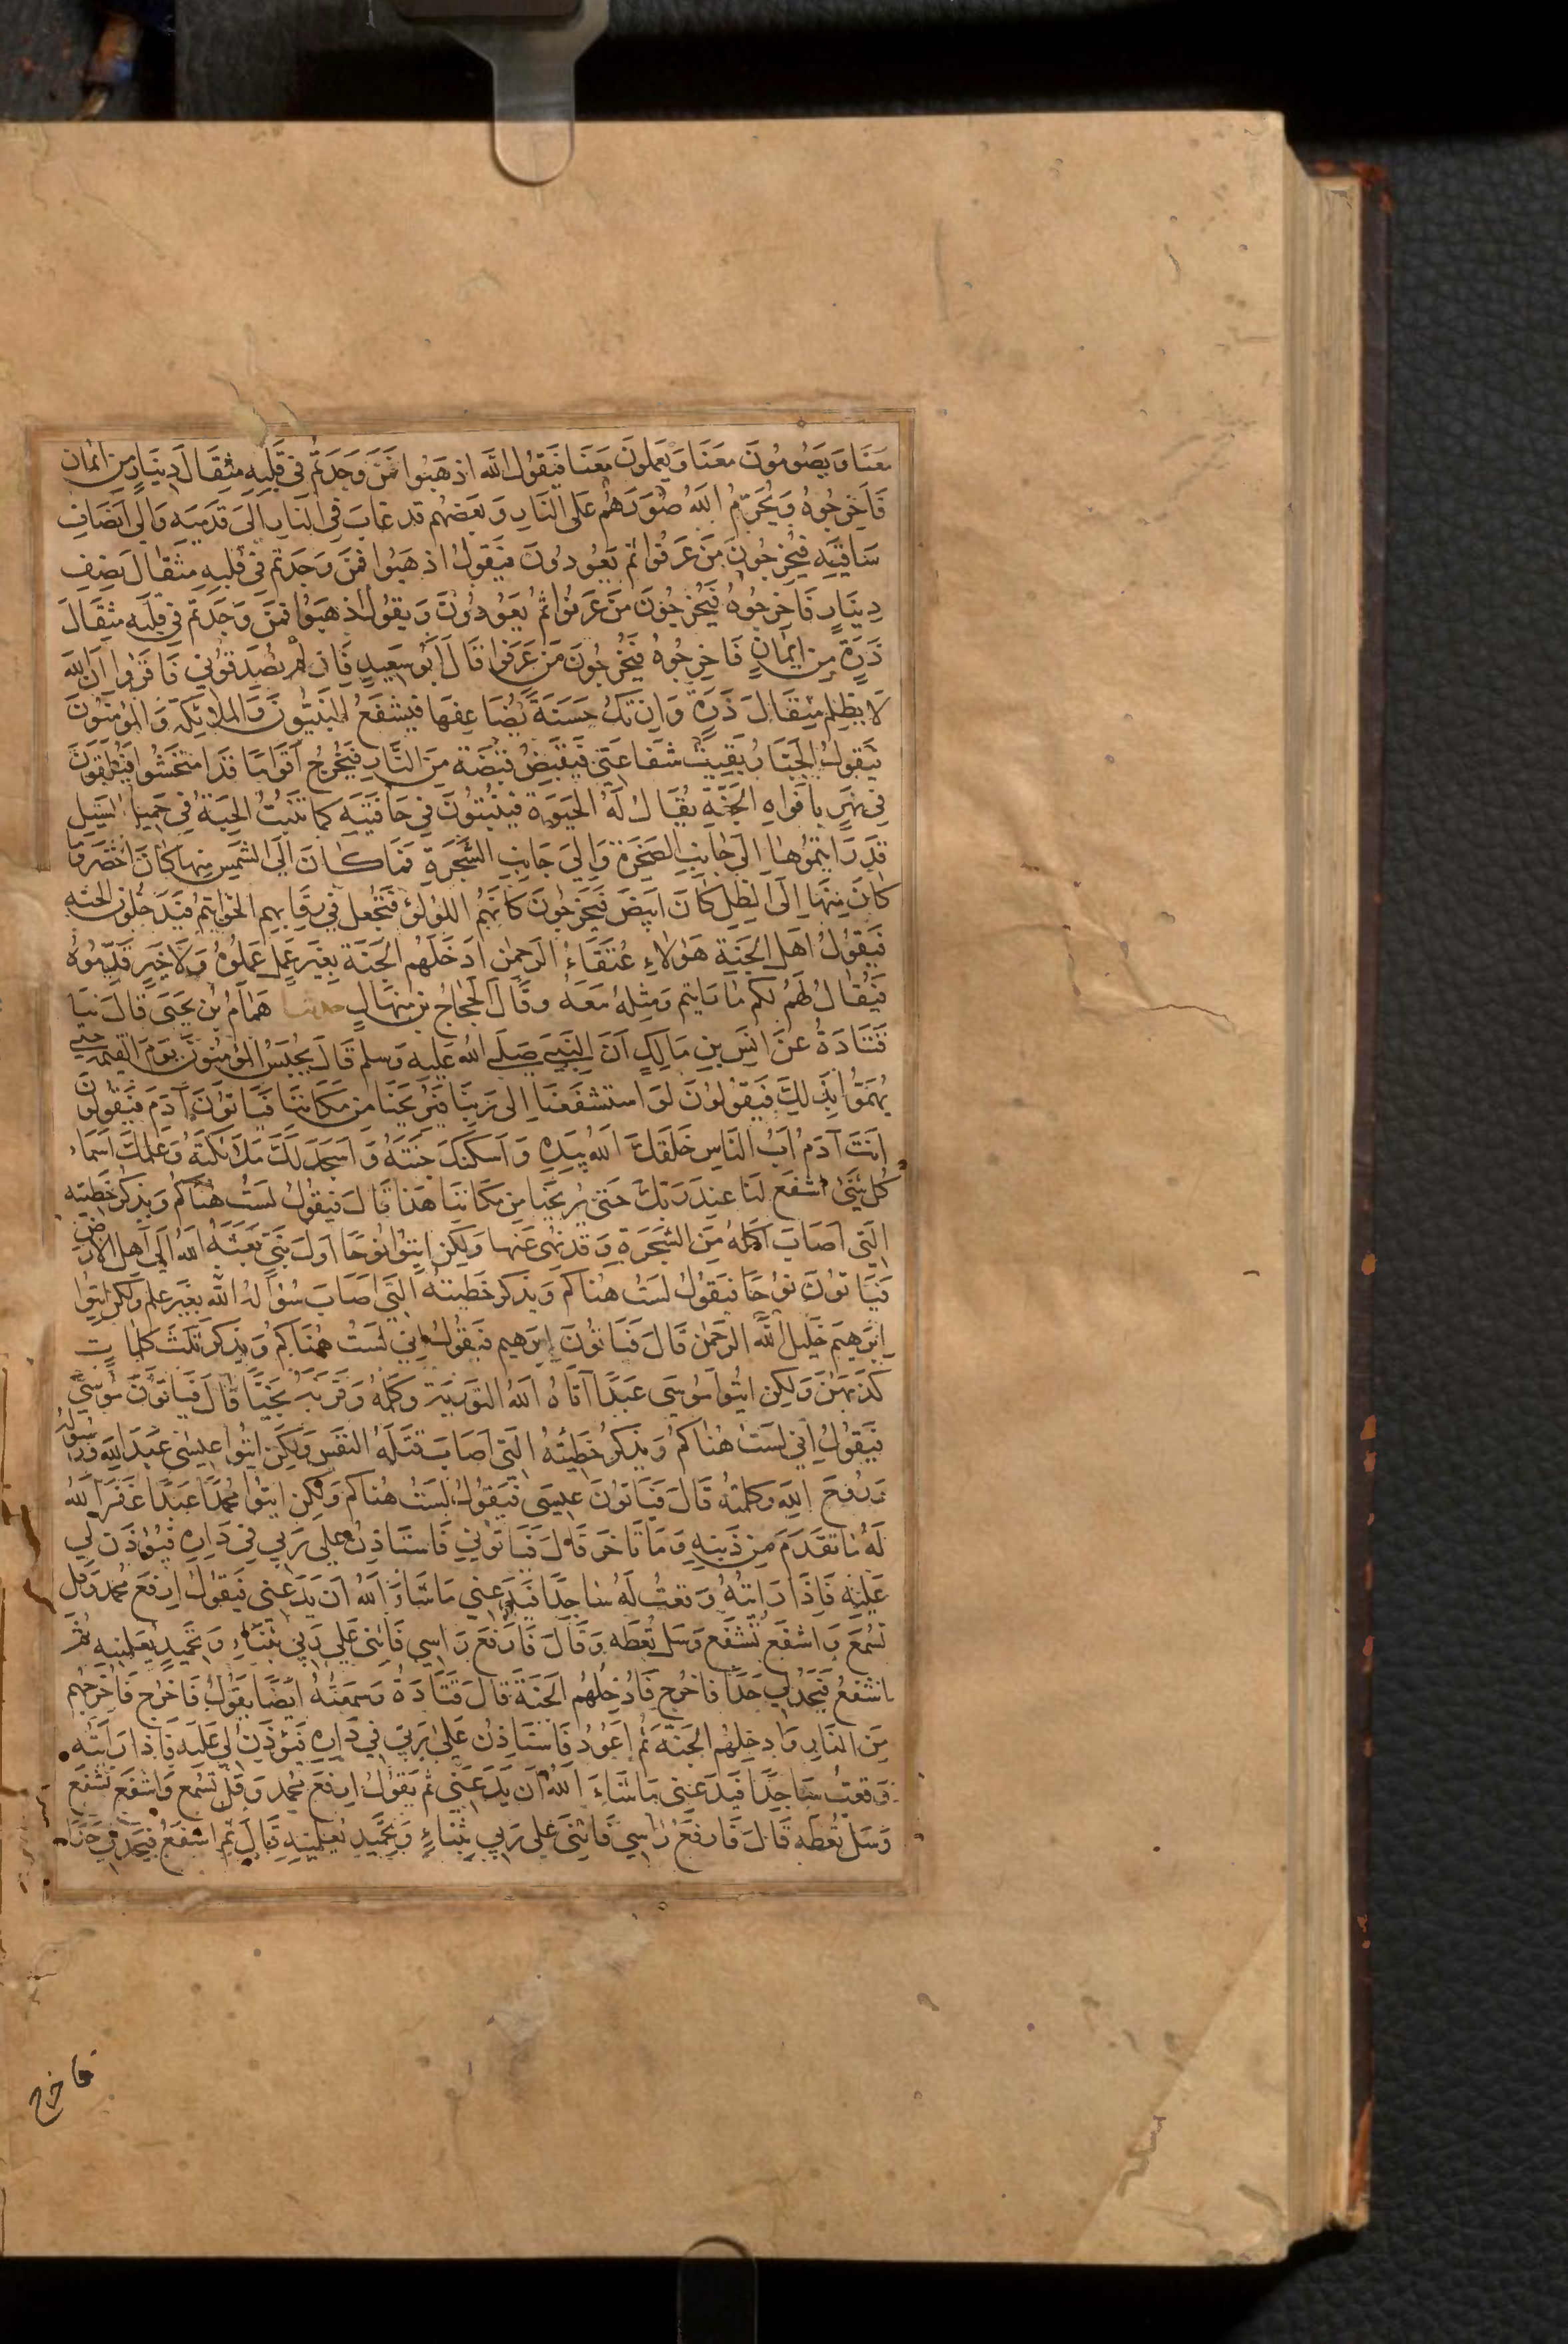 معنا ويصومون معنا ويعملون معنا فيقول الله اذهبوا فمن وجدتم في قلبه مثقال دينار من ايمان
فاخرجوه ويحرم الله صورهم على النار وبعضهم قد غاب في النار الى قدميه والى انصاف
ساقيه فيخرجون من عرفوا ثم يعودون فيقول اذهبوا فمن وجدتم في قلبه مثقال نصف
دينار فاخرجوه فيخرجون من عرفوا ثم يعودون ويقول اذهبوا فمن وجدتم في قلبه مثقال
ذرة من ايمان فاخرجوه فيخرجون من عرفوا قال ابو سعيد فان لم تصدقوني فاقرؤا ان الله
لا يظلم مثقال ذرة وان تك حسنة يضاعفها فيشفع النبيون والملائكة والمؤمنون
فيقول الجبار بقيت شفاعتي فيقبض قبضة من النار فيخرج اقواما قد امتحشوا فيلقون
في نهر بافواه الجنة يقال له الحيوة فينبتون في حافتيه كما تنبت الحبة في حميل السيل
قد رايتموها الى جانب الصخرة والى جانب الشجرة فما كان الى الشمس منها كان اخضر وما
كان منها الى الظل كان ابيض فيخرجون كانهم اللؤلؤ فتجعل في رقابهم الخواتيم فيدخلون الجنة
فيقول اهل الجنة هولاء عتقاء الرحمن ادخلهم الجنة بغير عمل عملوه ولا خير قدموه
فيقال لهم لكم ما رايتم ومثله معه وقال الحجاج بن منهال حدثنا همام بن يحيى قال ثنا
قتادة عن انس بن مالك ان النبي صلى الله عليه وسلم قال يحبس المؤمنون يوم القيمة حتى
يهموا بذلك فيقولون لو استشفعنا الى ربنا فيريحنا من مكاننا فياتون آدم فيقولون
انت آدم اب الناس خلقك الله بيده واسكنك جنته واسجد لك ملائكته وعلمك اسماء
كل شئ اشفع لنا عند ربك حتى يريحنا من مكاننا هذا قال فيقول لست هناكم ويذكر خطيئته
التي اصاب اكله من الشجرة وقد نهى عنها ولكن ايتوا نوحا اول نبي بعثه الله الى اهل الارض
فياتون نوحا فيقول لست هناكم ويذكر خطيئته التي اصاب سؤاله الله بغير علم ولكن ايتوا
ابرهيم خليل الله الرحمن قال فياتون ابرهيم فيقول اني لست هناكم ويذكر ثلث كلمات
كذبهن ولكن ايتوا موسى عبدا آتاه الله التورية وكلمه وقربه نجيا قال فياتون موسى
فيقول اني لست هناكم ويذكر خطيئته التي اصاب قتله النفس ولكن ايتوا عيسى عبد الله ورسوله
وروح الله وكلمته قال فياتون عيسى فيقول لست هناكم ولكن ايتوا محمدا عبدا غفر الله
له ما تقدم من ذنبه وما تاخر قال فياتوني فاستاذن على ربي في داره فيؤذن لي
عليه فاذا رايته وقعت له ساجدا فيدعني ما شاء الله ان يدعني فيقول ارفع محمد وقل
تسمع واشفع تشفع وسل تعطه وقال فارفع راسي فاثني على ربي بثناء وتحميد يعلمنيه ثم
اشفع فيحد لي حدا فاخرج فادخلهم الجنة قال قتادة وسمعته ايضا يقول فاخرج فاخرجهم
من النار وادخلهم الجنة ثم اعود فاستاذن على ربي في داره فيؤذن لي عليه فاذا رايته
وقعت ساجدا فيدعني ما شاء الله ان يدعني ثم يقول ارفع محمد وقل تسمع واشفع تشفع
وسل تعطه قال فارفع راسي فاثني على ربي بثناء وتحميد يعلمنيه قال ثم اشفع فيحد لي حدا
فاخرج